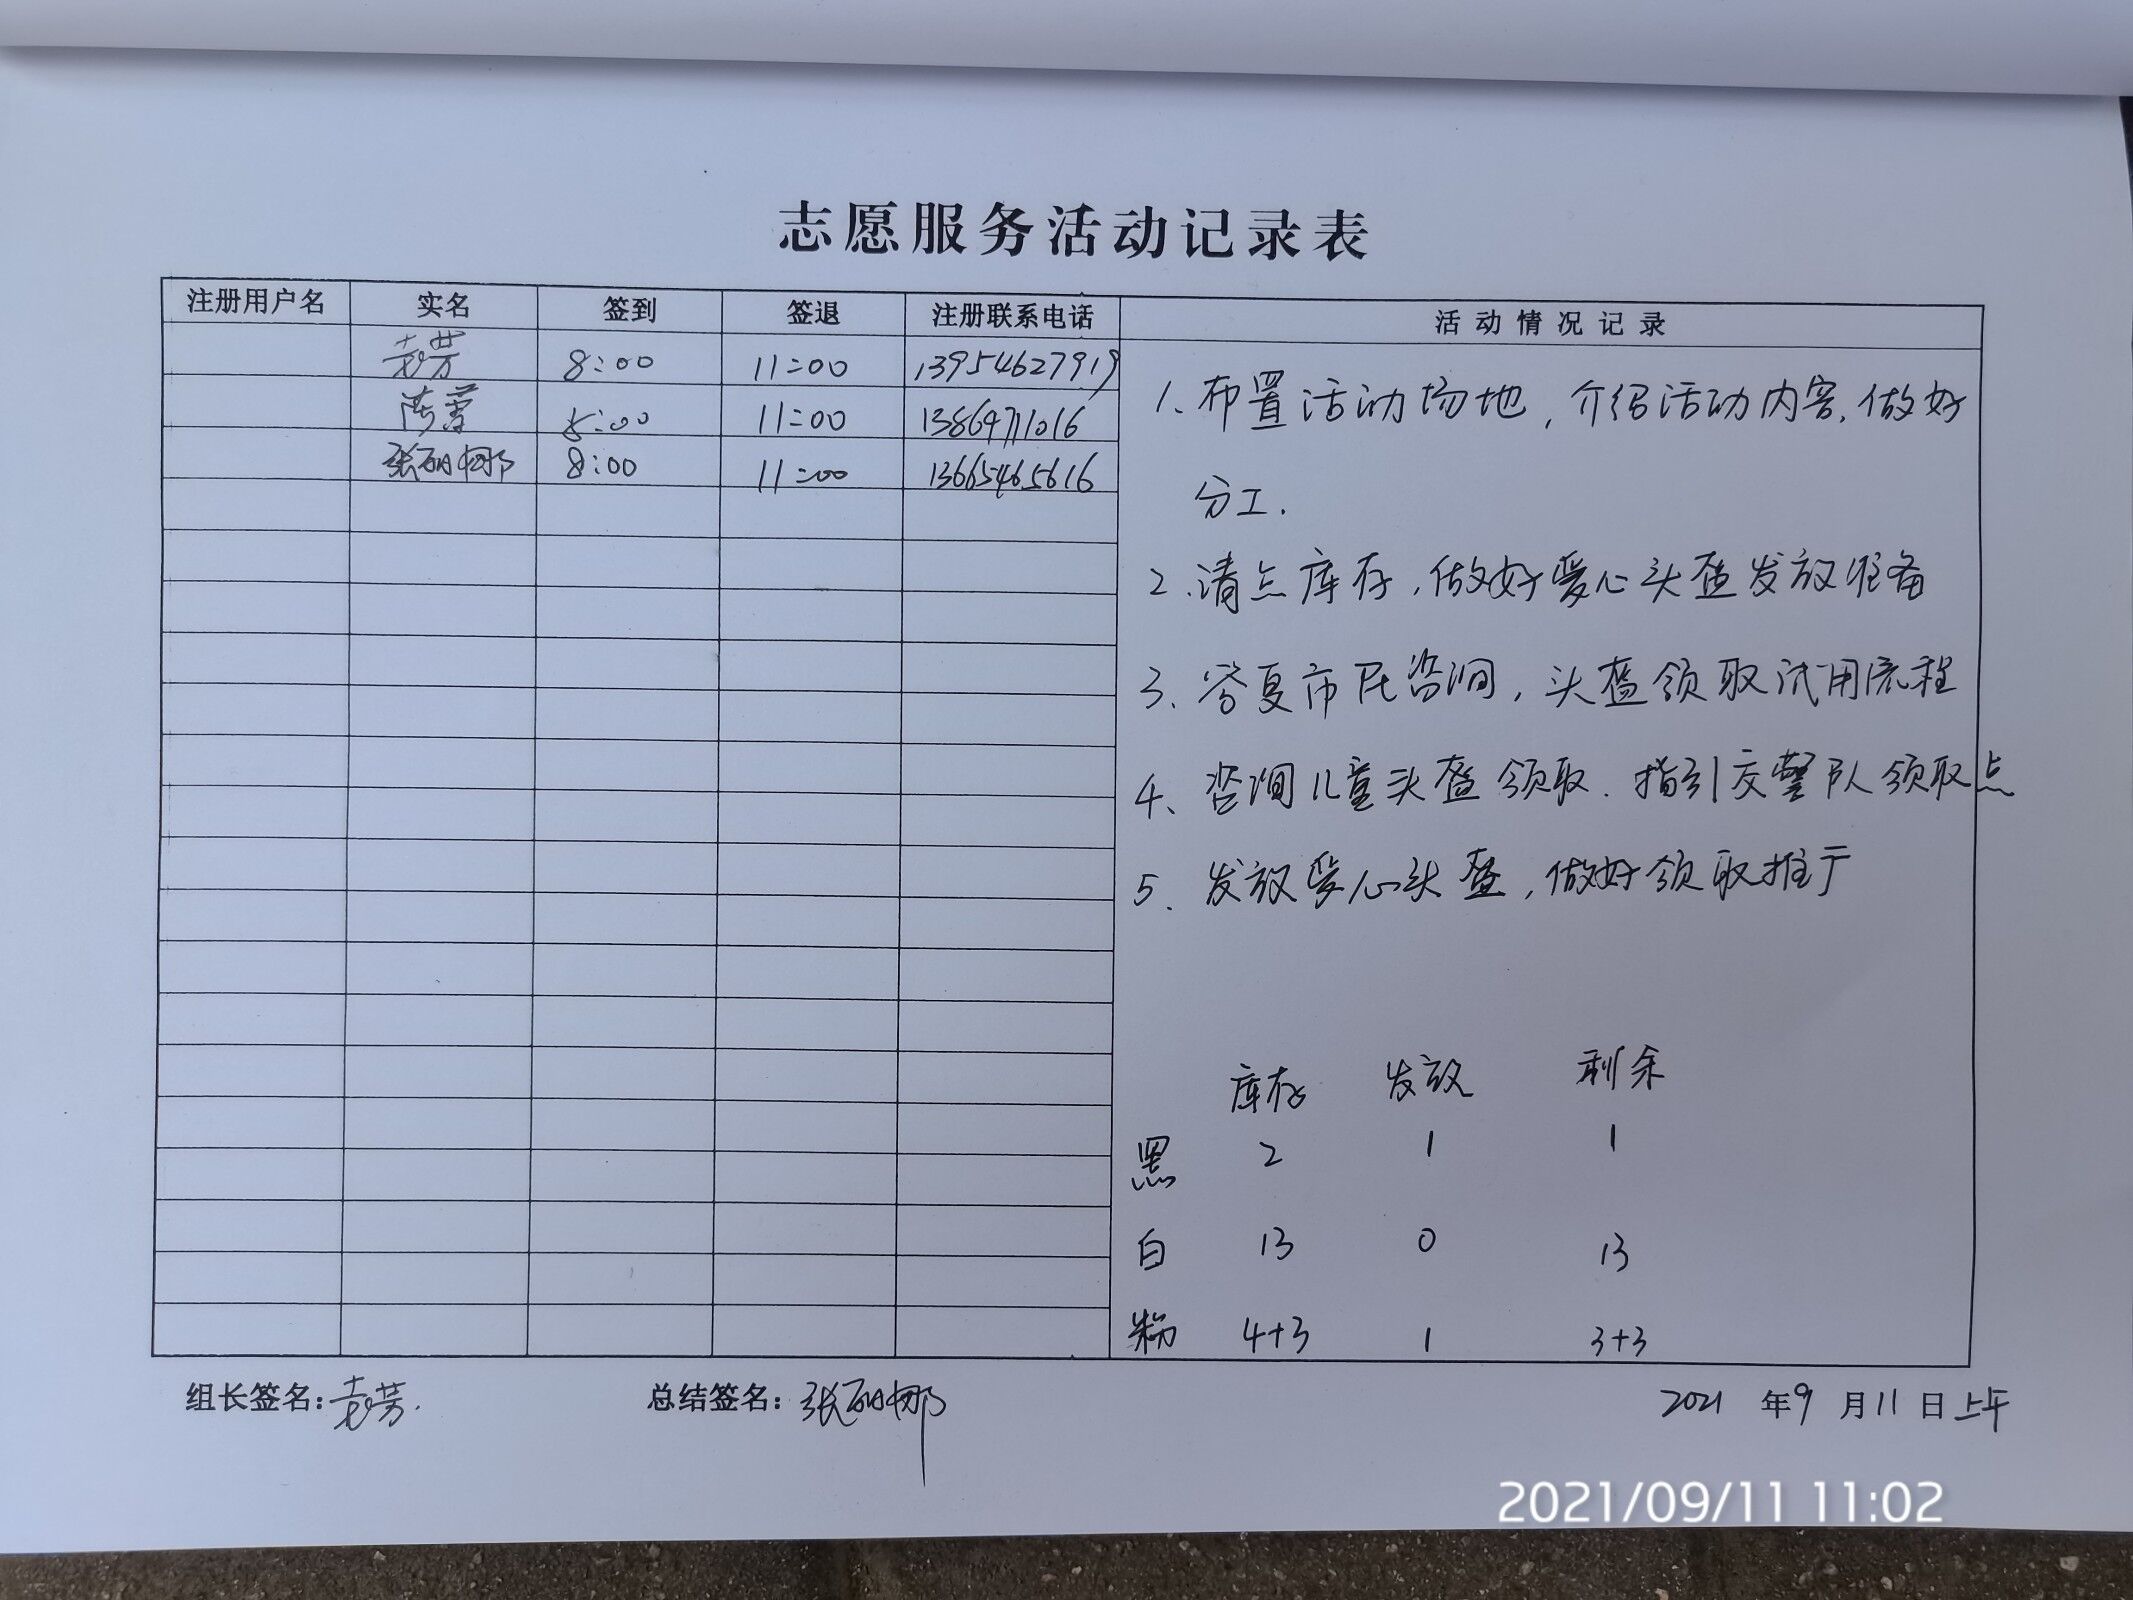 志愿服务活动记录表
注册用户名 实名 签到 签退 注册联系电话 活动情况记录
袁芳 8:00 11:00 13954627919
陈蕾 8:00 11:00 13864711016
张丽娜 8:00 11:00 13665465616
1、布置活动场地,介绍活动内容,做好
分工.
2、清点库存,做好爱心头盔发放准备
3、答复市民咨询,头盔领取试用流程
4、咨询儿童头盔领取.指引交警队领取点
5、发放爱心头盔,做好领取推广
库存 发放 剩余
黑 2 1 1
白 13 0 13
粉 4+3 1 3+3
组长签名:袁芳. 总结签名:张丽娜 2021年9月11日上午
2021/09/11 11:02